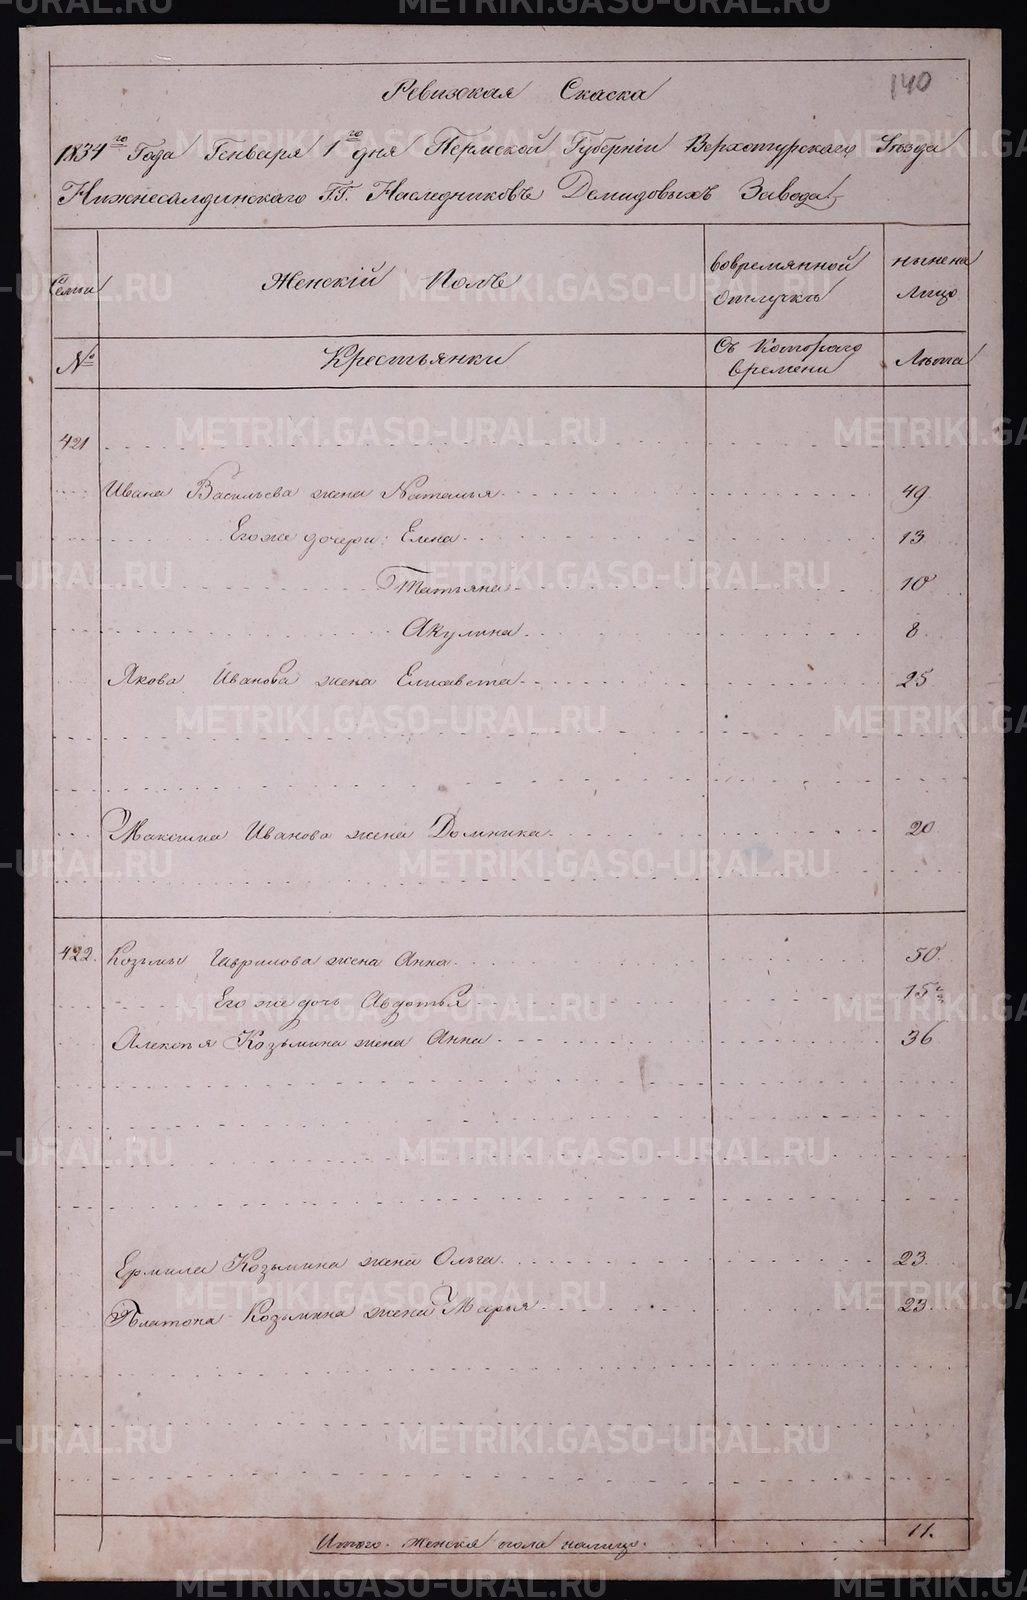 140
Ревизская Скаска
1834го Года Генваря 1го дня Пермской Губерніи Верхотурскаго Уѣзда
Нижнесалдинскаго ГГ. Наследниковъ Демидовыхъ Завода
Семьи
Женскій Полъ
вовремянной отлучкѣ
нынена лицо
№
Крестьянки
Съ котораго времени
Лѣта
421
Ивана Васильева жена Наталья 49
Его же дочери: Елена 13
Татьяна 10
Акулина 8
Якова Иванова жена Елисавета 25
Максима Иванова жена Домника 20
422. Козьмы Гаврилова жена Анна 50
Его же дочь Авдотья 15
Алексѣя Козьмина жена Анна 36
Ермила Козьмина жена Ольга 23
Платона Козьмина жена Марья 23
Итого женска пола налицо. 11.
METRIKI.GASO-URAL.RU